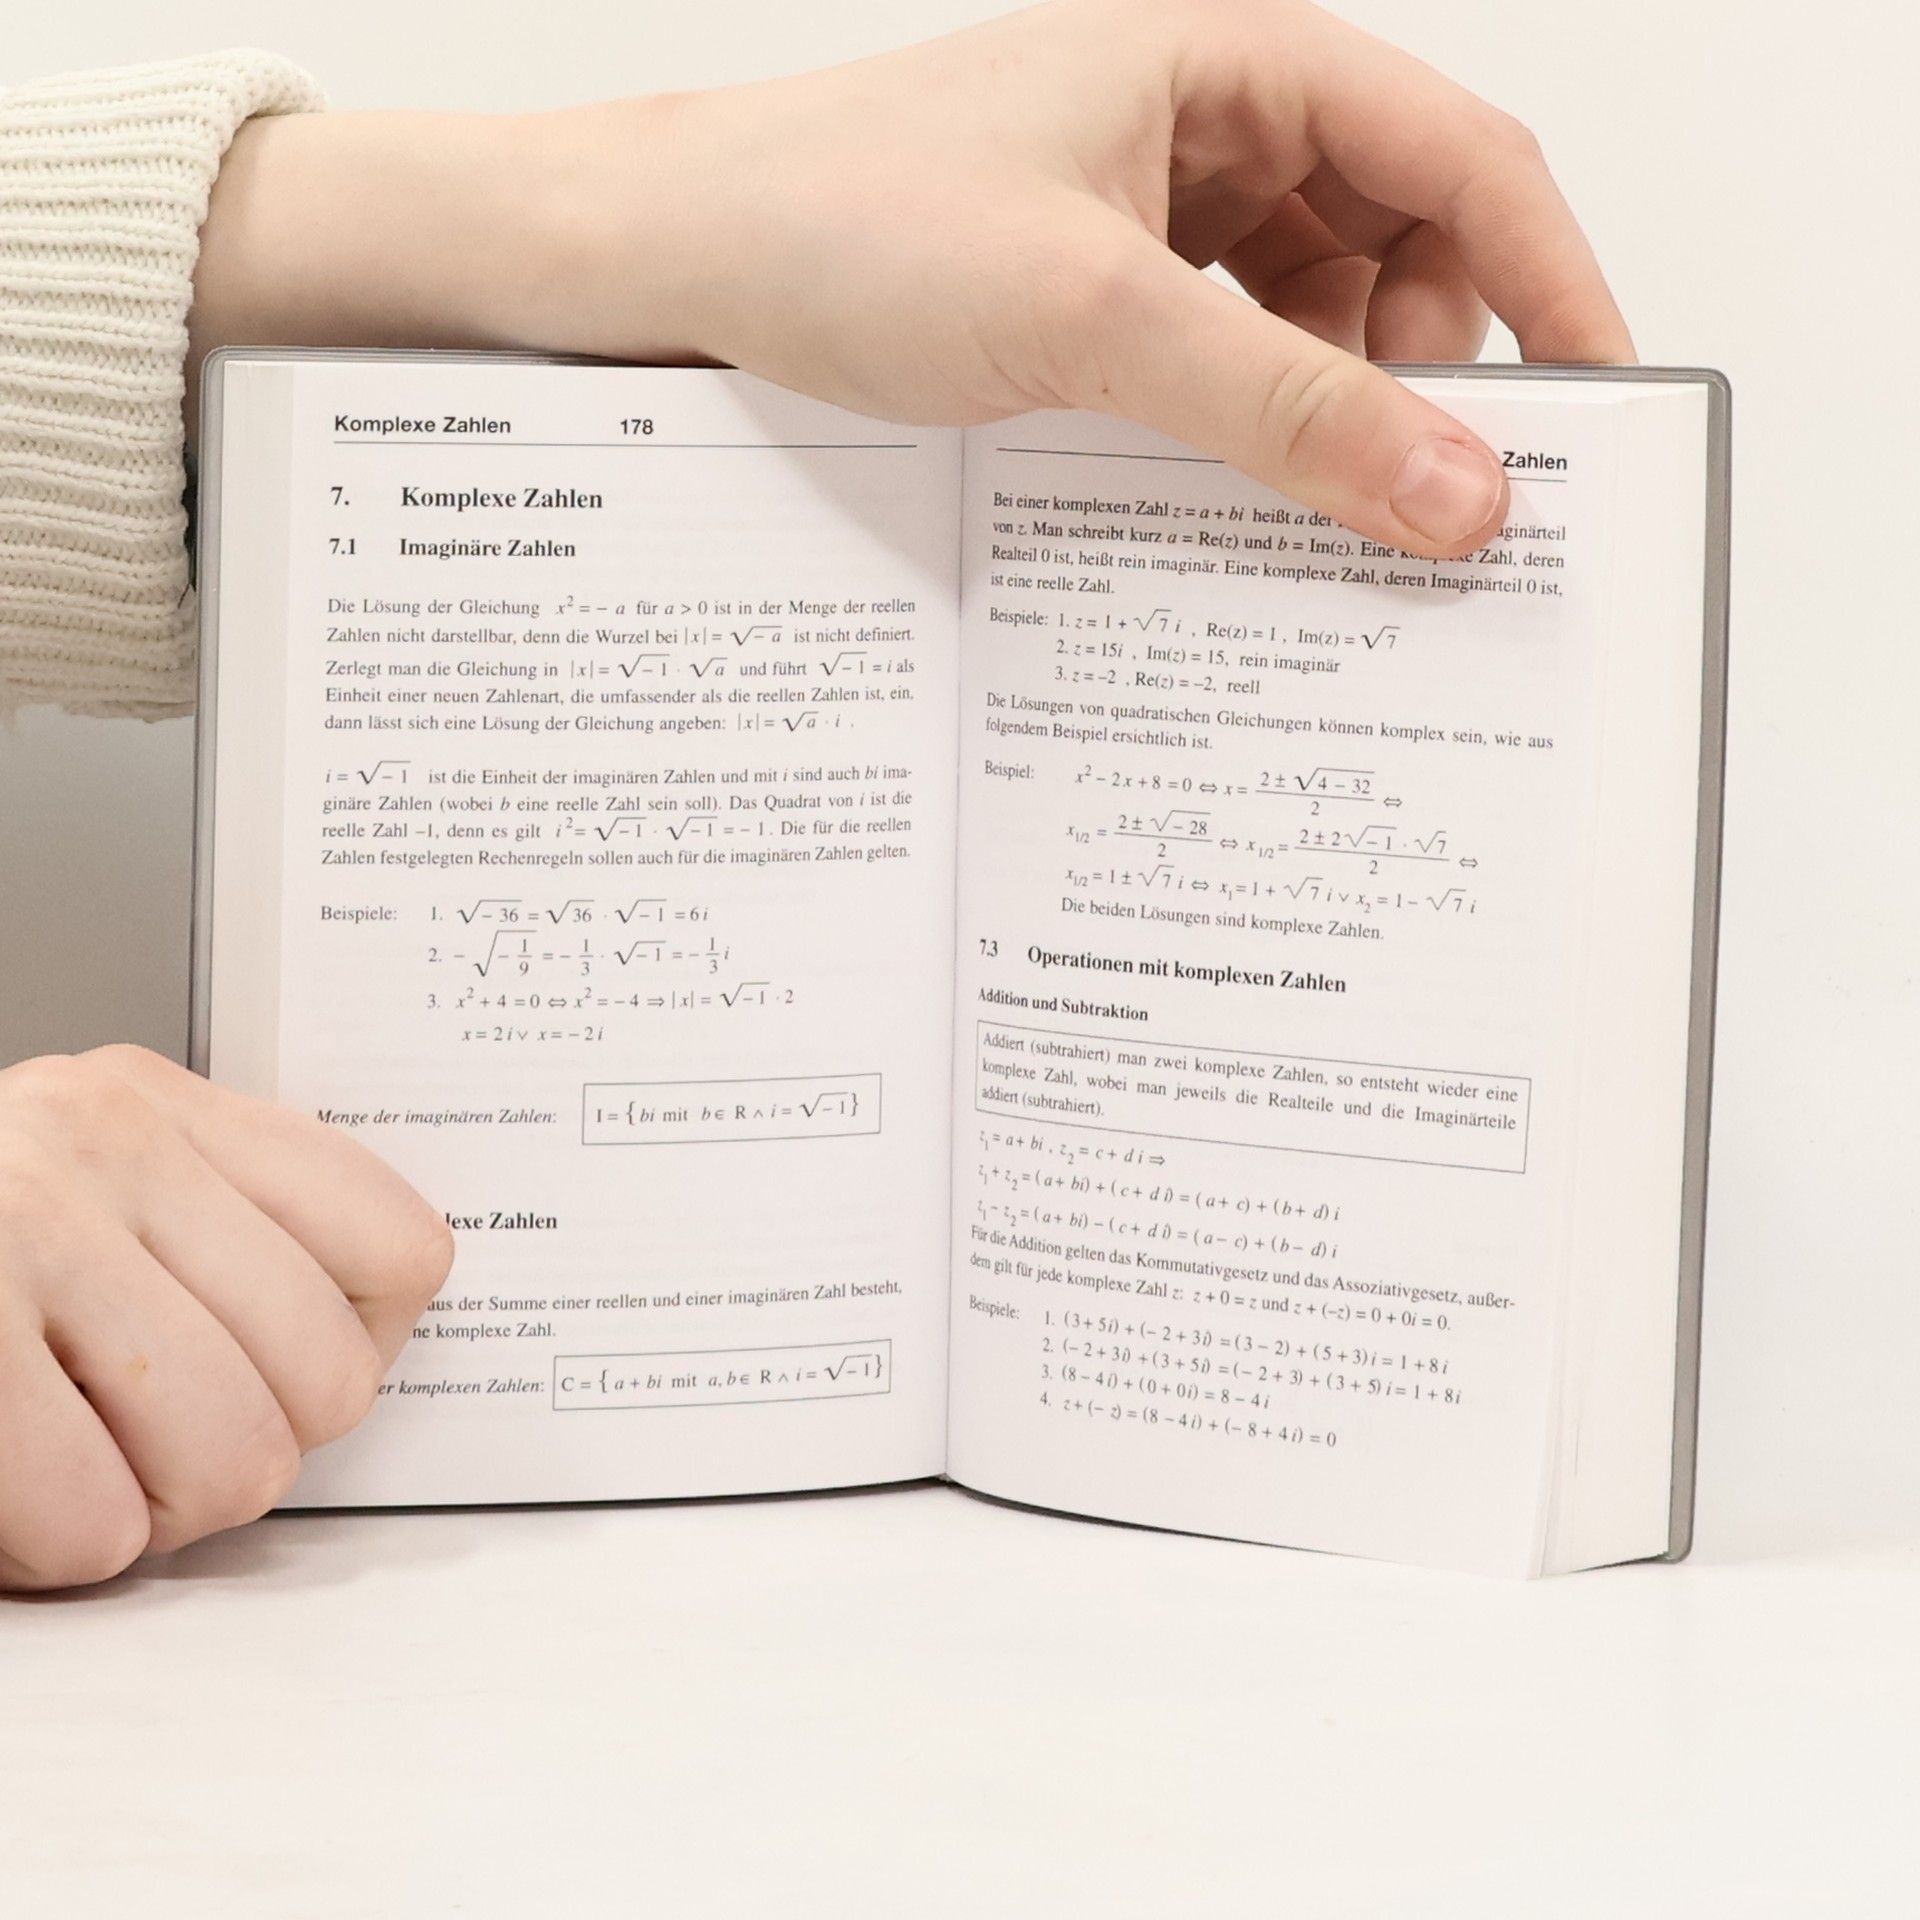 Komplexe Zahlen 178
7. Komplexe Zahlen
7.1 Imaginäre Zahlen
Die Lösung der Gleichung x² = – a für a > 0 ist in der Menge der reellen
Zahlen nicht darstellbar, denn die Wurzel bei |x| = √– a ist nicht definiert.
Zerlegt man die Gleichung in |x| = √– 1 · √a und führt √– 1 = i als
Einheit einer neuen Zahlenart, die umfassender als die reellen Zahlen ist, ein,
dann lässt sich eine Lösung der Gleichung angeben: |x| = √a · i .
i = √– 1 ist die Einheit der imaginären Zahlen und mit i sind auch bi ima-
ginäre Zahlen (wobei b eine reelle Zahl sein soll). Das Quadrat von i ist die
reelle Zahl –1, denn es gilt i² = √– 1 · √– 1 = – 1. Die für die reellen
Zahlen festgelegten Rechenregeln sollen auch für die imaginären Zahlen gelten.
Beispiele: 1. √– 36 = √36 · √– 1 = 6 i
2. – √(– 1/9) = – 1/3 · √– 1 = – 1/3 i
3. x² + 4 = 0 ⇔ x² = – 4 ⇒ |x| = √– 1 · 2
x = 2 i ∨ x = – 2 i
Menge der imaginären Zahlen: I = { bi mit b ∈ R ∧ i = √– 1 }
lexe Zahlen
aus der Summe einer reellen und einer imaginären Zahl besteht,
ne komplexe Zahl.
er komplexen Zahlen: C = { a + bi mit a, b ∈ R ∧ i = √– 1 }
Zahlen
Bei einer komplexen Zahl z = a + bi heißt a der aginärteil
von z. Man schreibt kurz a = Re(z) und b = Im(z). Eine Zahl, deren
Realteil 0 ist, heißt rein imaginär. Eine komplexe Zahl, deren Imaginärteil 0 ist,
ist eine reelle Zahl.
Beispiele: 1. z = 1 + √7 i , Re(z) = 1 , Im(z) = √7
2. z = 15i , Im(z) = 15, rein imaginär
3. z = –2 , Re(z) = –2, reell
Die Lösungen von quadratischen Gleichungen können komplex sein, wie aus
folgendem Beispiel ersichtlich ist.
Beispiel: x² – 2x + 8 = 0 ⇔ x = (2 ± √(4 – 32))/2 ⇔
x₁/₂ = (2 ± √– 28)/2 ⇔ x₁/₂ = (2 ± 2√– 1 · √7)/2 ⇔
x₁/₂ = 1 ± √7 i ⇔ x₁ = 1 + √7 i ∨ x₂ = 1 – √7 i
Die beiden Lösungen sind komplexe Zahlen.
7.3 Operationen mit komplexen Zahlen
Addition und Subtraktion
Addiert (subtrahiert) man zwei komplexe Zahlen, so entsteht wieder eine
komplexe Zahl, wobei man jeweils die Realteile und die Imaginärteile
addiert (subtrahiert).
z₁ = a + bi , z₂ = c + d i ⇒
z₁ + z₂ = (a + bi) + (c + d i) = (a + c) + (b + d) i
z₁ – z₂ = (a + bi) – (c + d i) = (a – c) + (b – d) i
Für die Addition gelten das Kommutativgesetz und das Assoziativgesetz, außer-
dem gilt für jede komplexe Zahl z: z + 0 = z und z + (–z) = 0 + 0i = 0.
Beispiele: 1. (3 + 5i) + (– 2 + 3i) = (3 – 2) + (5 + 3) i = 1 + 8 i
2. (– 2 + 3i) + (3 + 5i) = (– 2 + 3) + (3 + 5) i = 1 + 8i
3. (8 – 4i) + (0 + 0i) = 8 – 4 i
4. z + (– z) = (8 – 4 i) + (– 8 + 4 i) = 0